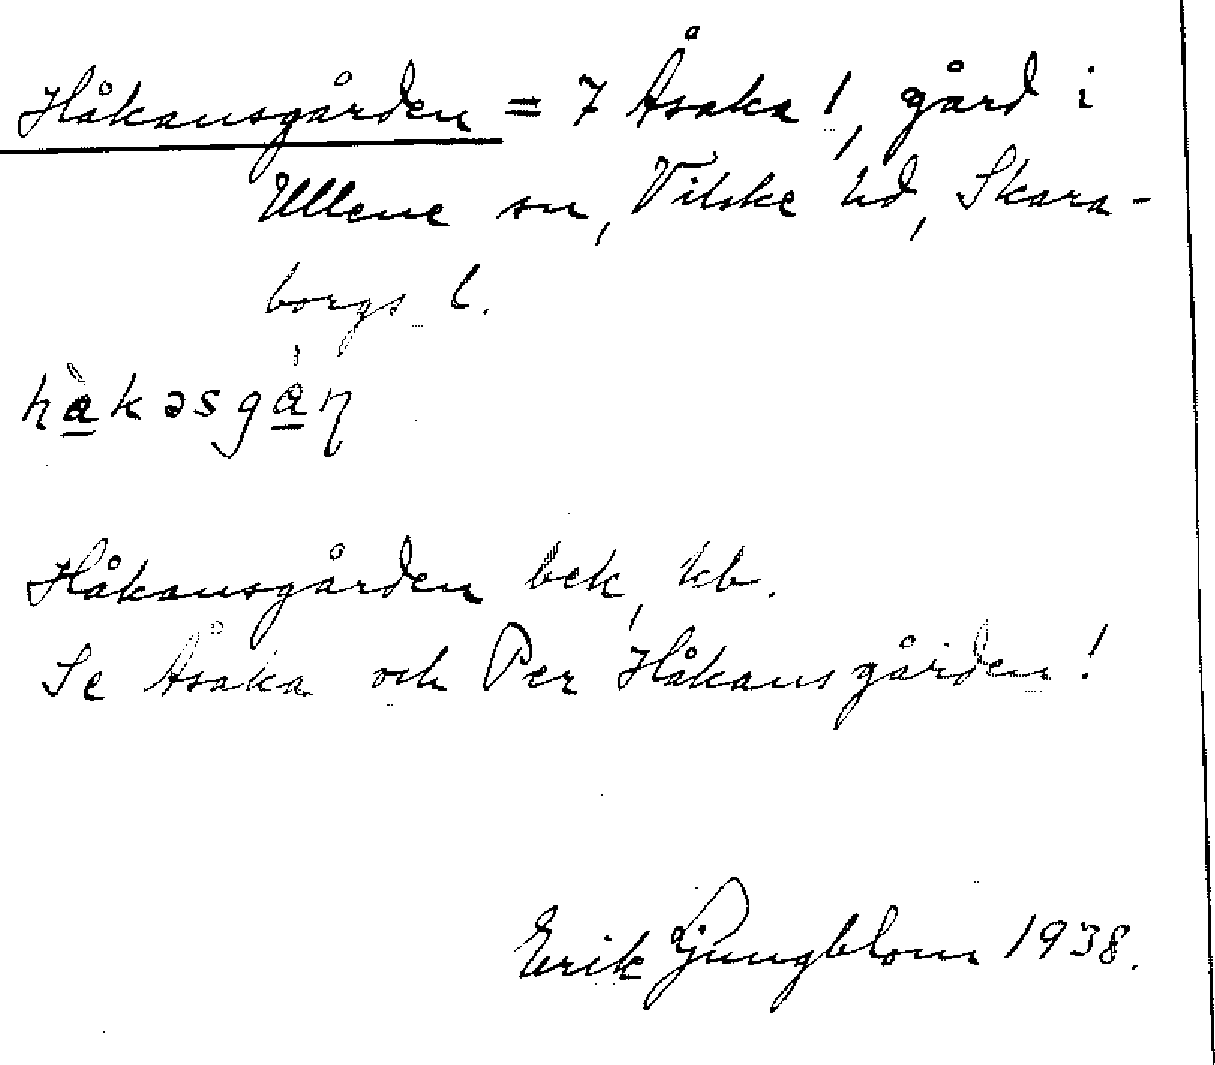 Håkansgården = 7 Åsaka!, gård i
Ullene sn, Vilske hd, Skara-
borgs l.
hàkəsgán
Håkansgården bek, kb.
Se Åsaka och Per Håkansgården!
Erik Ljungblom 1938.